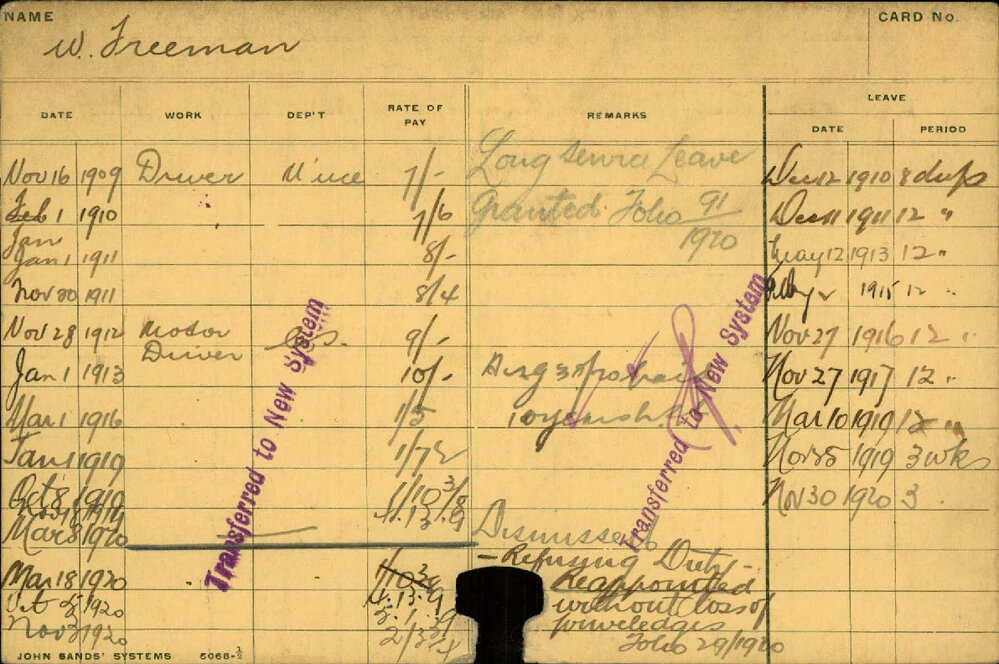 NAME
CARD No.
W. Freeman
DATE WORK DEP'T RATE OF PAY REMARKS LEAVE
DATE PERIOD
Nov 16 1909 Driver 7/- Long Service Leave Dec 12 1910 8 days
Feb 1 1910 7/6 Granted Folio 91 1911 12 "
1920
Jan
Jan 1 1911 8/- May 12 1913 12 "
Nov 30 1911 8/4 1915 12 "
Nov 28 1912 Motor 9/- Nov 27 1916 12 "
Driver
Jan 1 1913 10/- Nov 27 1917 12 "
Mar 1 1916 1/5 10 years Mar 10 1919 12 "
Jan 1 1919 1/7½ 1919 3 wks
Oct 8 1919 1/10 3/8 Nov 30 1920 3 "
4.13.9
Mar 8 1920 Dismissed
- Refusing Duty -
Mar 18 1920 Reappointed
Oct 1920 4.13.9 without loss of
5.1.9 priveledges
Nov 1920 Folio 29/1920
Transferred to New System
Transferred to New System
JOHN SANDS' SYSTEMS 6068-½